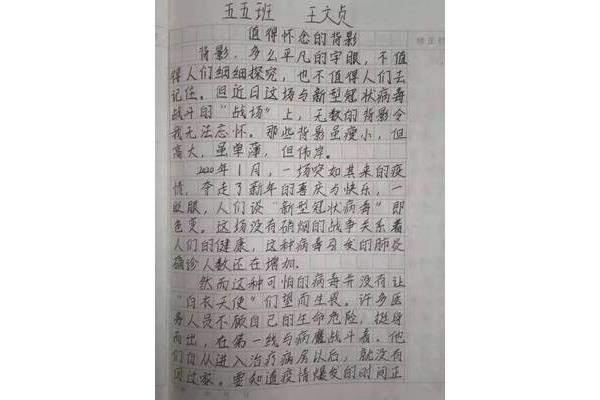 五五班 王文贞
值得怀念的背影
背影,多么平凡的字眼,不值
得人们细细探究,也不值得人们去
记住。但近日这场与新型冠状病毒
战斗的“战场”上,无数的背影令
我无法忘怀。那些背影虽瘦小,但
高大,虽单薄,但伟岸。
2020年1月,一场突如其来的疫
情,夺走了新年的喜庆与快乐,一
眨眼,人们谈“新型冠状病毒”即
色变。这场没有硝烟的战争关系着
人们的健康,这种病毒引发的肺炎
确诊人数还在增加。
然而这种可怕的病毒并没有让
“白衣天使”们望而生畏。许多医
务人员不顾自己的生命危险,挺身
而出,在第一线与病魔战斗着。他
们自从进入治疗病房以后,就没有
回过家。要知道疫情爆发的时间正